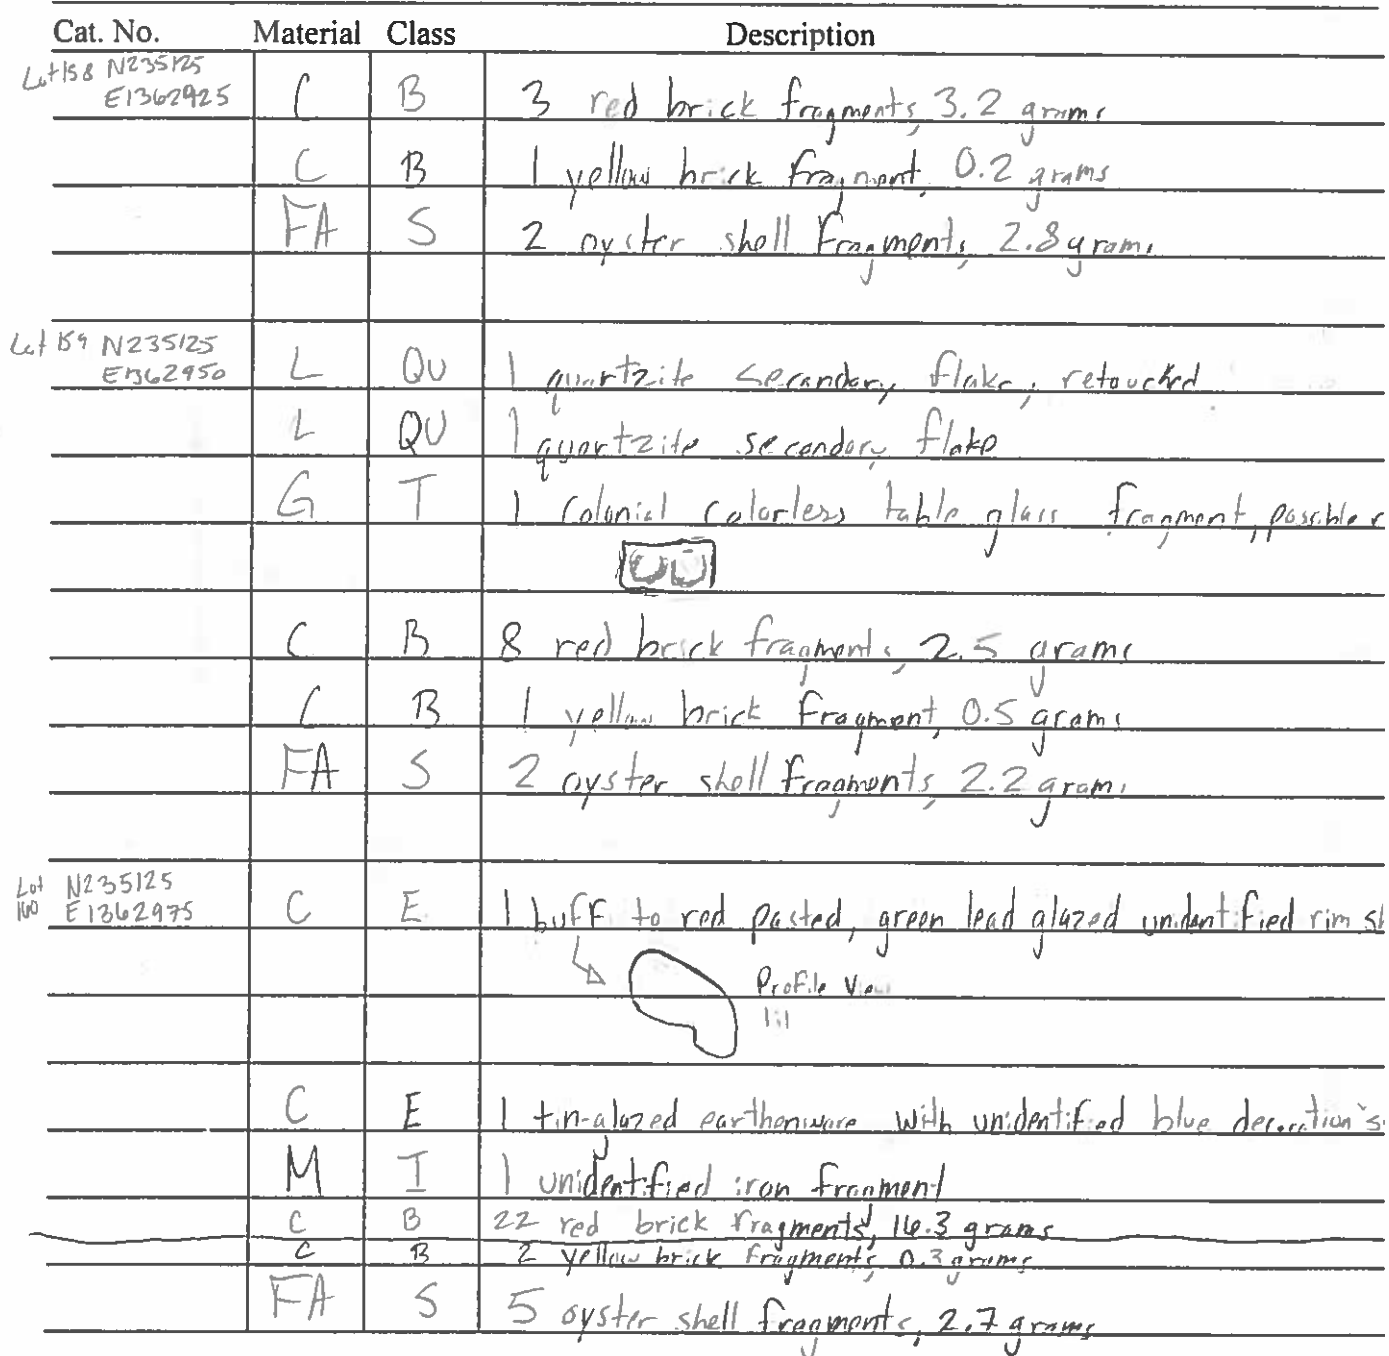 Cat. No. Material Class Description
Lot 158 N235125
E1362925 C B 3 red brick fragments, 3.2 grams
C B 1 yellow brick fragment, 0.2 grams
FA S 2 oyster shell fragments, 2.8 grams
Lot 159 N235125
E1362950 L QU 1 quartzite secondary flake, retouched
L QU 1 quartzite secondary flake
G T 1 Colonial Colorless table glass fragment, possible
C B 8 red brick fragments, 2.5 grams
C B 1 yellow brick fragment, 0.5 grams
FA S 2 oyster shell fragments, 2.2 grams
Lot N235125
160 E1362975 C E 1 buff to red pasted, green lead glazed unidentified rim sh
Profile View
1:1
C E 1 tin-glazed earthenware with unidentified blue decoration
M I 1 unidentified iron fragment
C B 22 red brick fragments, 16.3 grams
C B 2 yellow brick fragments, 0.3 grams
FA S 5 oyster shell fragments, 2.7 grams